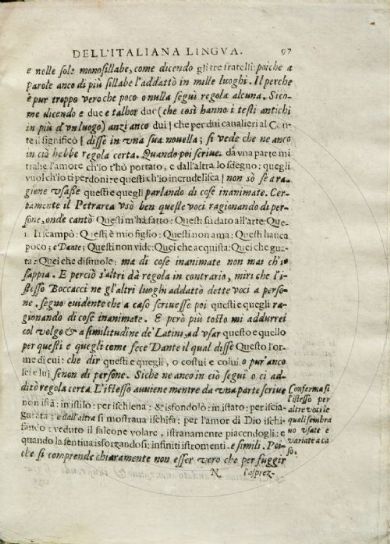 DELL'ITALIANA LINGVA. 97
e nelle sole monosillabe, come dicendo gli tre fratelli: poiche a
parole anco di più sillabe l'addattò in mille luoghi. Il perche
è pur troppo vero che poco o nulla seguì regola alcuna. Sico-
me dicendo e due e talhor duo (che così hanno i testi antichi
in più d'vn luogo) anzi anco dui [che per dui caualieri al Con-
te il significò] disse in vna sua nouella; si vede che ne anco
in ciò hebbe regola certa. Quando poi scriue, da vna parte mi
tralle l'amor ch'io t'hò portato, e dall'altra lo sdegno; quegli
vuol ch'io ti perdoni e questi ch'io incrudelisca] non sò se a ra-
gione vsasse questi e quegli parlando di cose inanimate. Cer-
tamente il Petrarca vsò ben queste voci ragionando di per-
sone, onde cantò Questi m'hà fatto: Questi fu dato all'arte: Que-
sti campò: Questi è mio figlio: Questi non ama: Questi hauea
poco; e Dante: Questi non vide: Quei che acquista: Quei che gu-
sta: Quei che distruole: ma di cose inanimate non mai ch'io
sappia. E perciò s'altri dà regola in contrario, miri che l'i-
stesso Boccacci ne gl'altri luoghi addattò dette voci a perso-
ne, segno euidente che a caso scriuesse poi questi e quegli ra-
gionando di cose inanimate. E però più tosto mi addurrei
col volgo & a similitudine de' Latini, ad vsar questo e quello
per questi e quegli come fece Dante il qual disse Questo l'or-
me di cui: che dir questi e quegli, o costui e colui o pur anco
lei e lui senon di persone. Siche ne anco in ciò seguì o ci ad-
ditò regola certa. L'istesso auuiene mentre da vna parte scriue
non istà: in istilo: per ischiena: & isfondolo: in istato: per iscia-
gurata: e dall'altra si mostraua ischifa: per l'amor di Dio ischi-
fianco: veduto il falcone volare, istranamente piacendogli: e
quando la sentiua isforzandosi: infiniti istromenti, e simili. Poi-
che si comprende chiaramente non esser vero che per fuggir
N l'asprez-
Conferma si
l'istesso per
altre voci le
quali sembra
no vsate e
variate a ca
so.